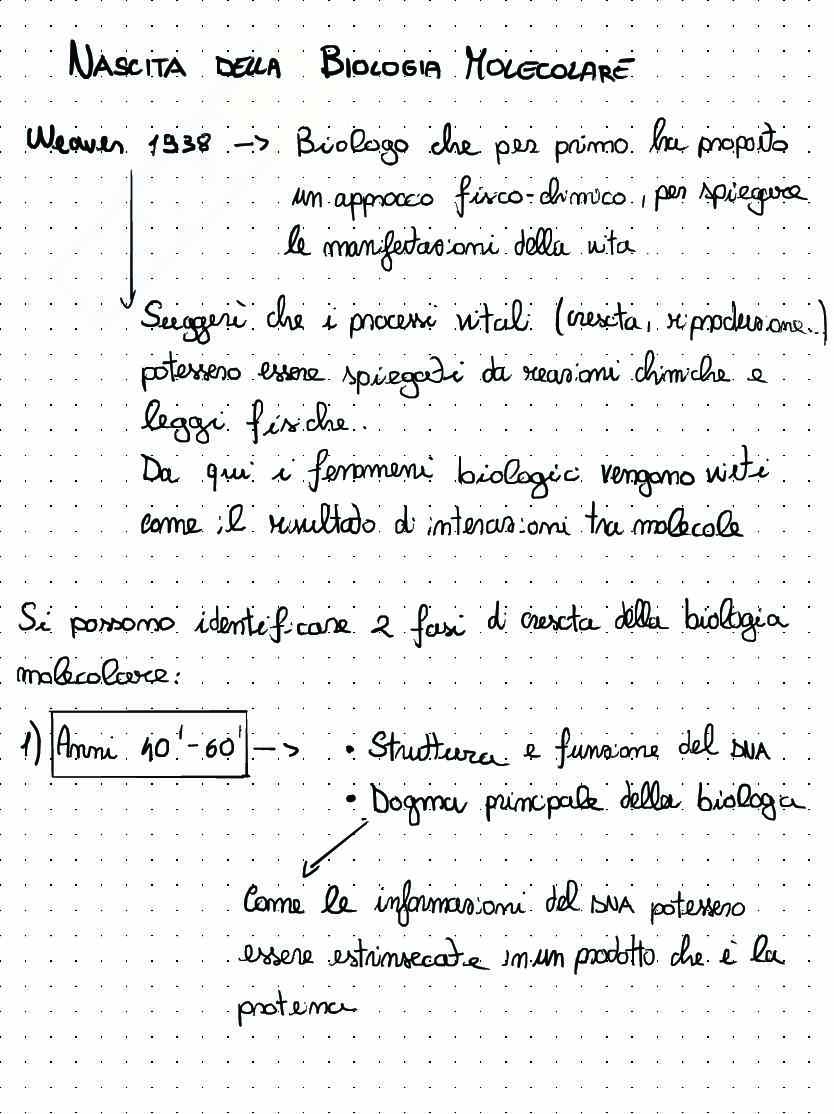 NASCITA DELLA BIOLOGIA MOLECOLARE
Weaver 1938 -> Biologo che per primo ha proposto
un approccio fisico-chimico, per spiegare
le manifestazioni della vita
Suggerì che i processi vitali (crescita, riproduzione..)
potessero essere spiegati da reazioni chimiche e
leggi fisiche..
Da qui i fenomeni biologici vengono visti
come il risultato di interazioni tra molecole
Si possono identificare 2 fasi di crescita della biologia
molecolare:
1) Anni 40'-60' -> • Struttura e funzione del DNA
• Dogma principale della biologia
Come le informazioni del DNA potessero
essere estrinsecate in un prodotto che è la
proteina